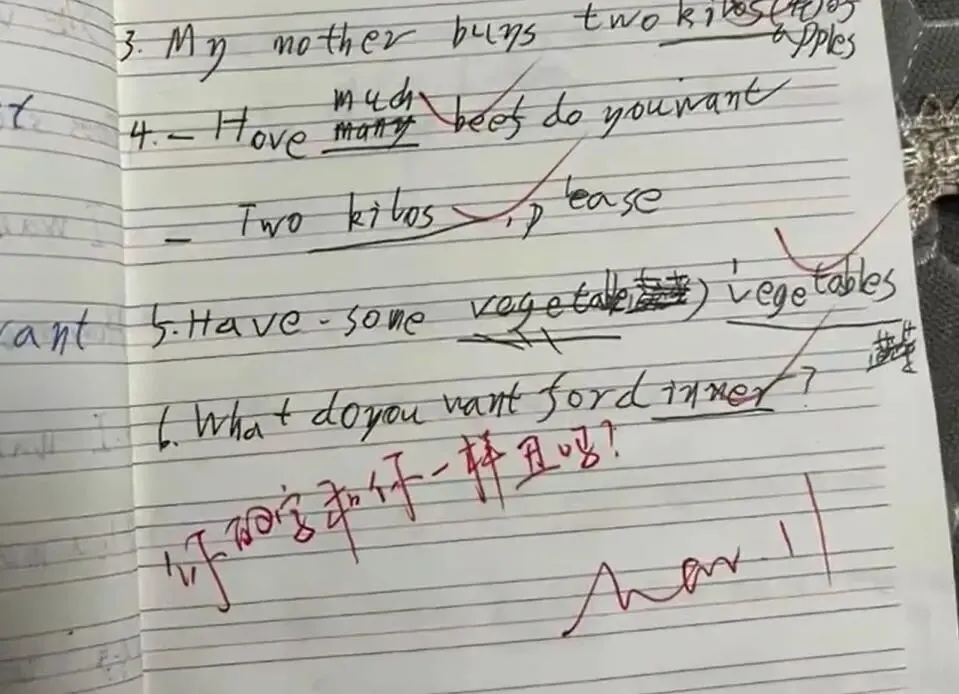 3. My mother buys two kilos of
apples
much
4. - Hove many beef do you want
- Two kilos, please
5. Have some vegetable) vegetables
6. What do you want for dinner?
你的字和你一样丑吗?
Mar. 11
ant